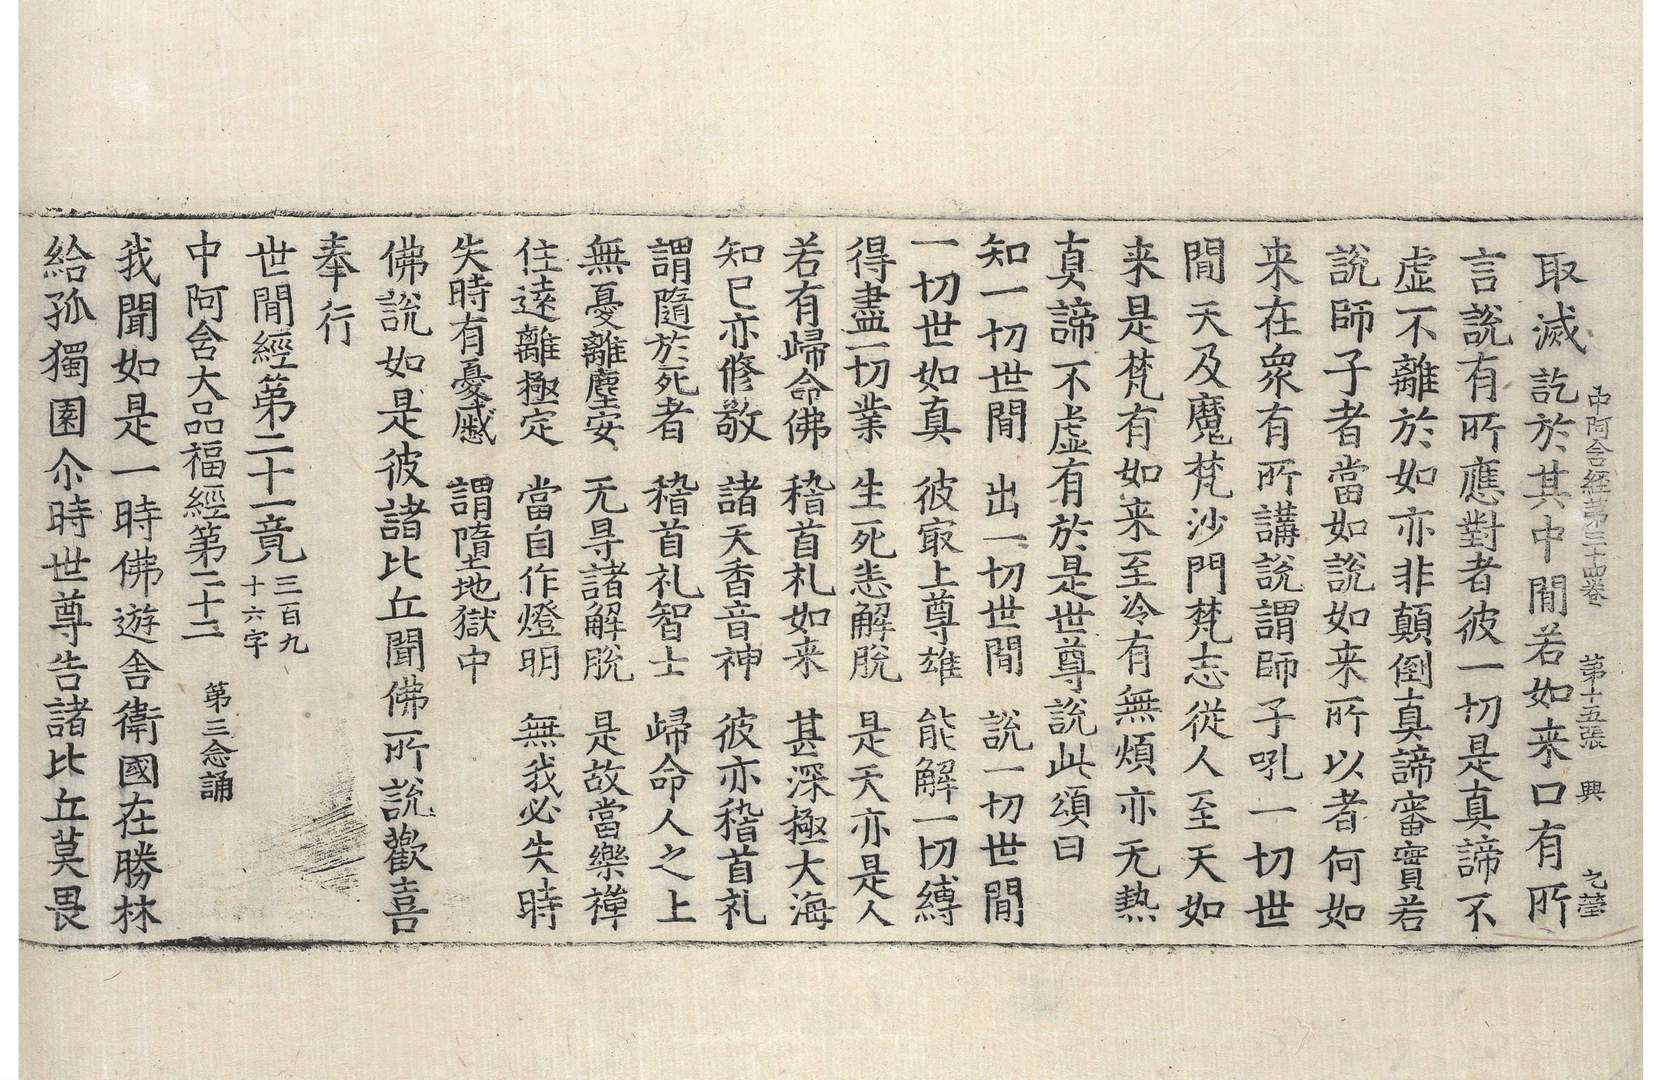 中阿含経第三十四巻 第十五張 興
取滅訖於其中間若如来口有所
言說有所應對者彼一切是真諦不
虛不離於如亦非顛倒真諦審實若
說師子者當如說如来所以者何如
来在衆有所講說謂師子吼一切世
間天及魔梵沙門梵志從人至天如
来是梵有如来至冷有無煩亦无熱
真諦不虛有於是世尊說此頌曰
知一切世間 出一切世間 說一切世間
一切世如真 彼㝡上尊雄 能解一切縛
得盡一切業 生死悉解脫 是天亦是人
若有歸命佛 稽首礼如来 甚深極大海
知已亦修敬 諸天香音神 彼亦稽首礼
謂隨於死者 稽首礼智士 歸命人之上
無憂離塵安 无㝵諸解脫 是故當樂禪
住遠離極定 當自作燈明 無我必失時
失時有憂慼 謂墮地獄中
佛說如是彼諸比丘聞佛所說歡喜
奉行
世間經第二十一竟 三百九
十六字
中阿含大品福經第二十二 第三念誦
我聞如是一時佛遊舍衛國在勝林
給孤獨園尒時世尊告諸比丘莫畏